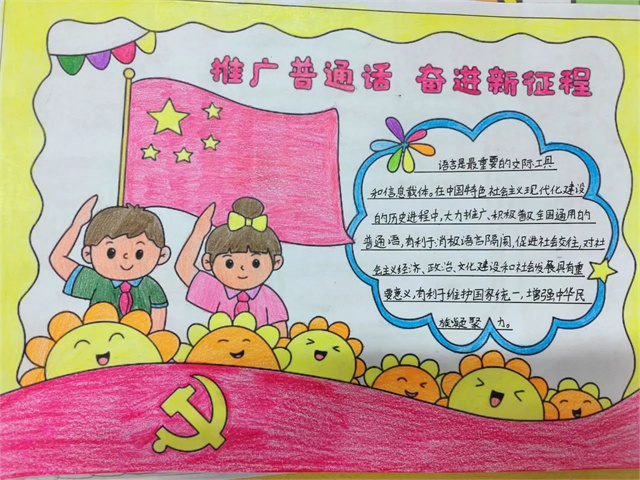 推广普通话 奋进新征程
语言是最重要的交际工具
和信息载体。在中国特色社会主义现代化建设
的历史进程中,大力推广、积极普及全国通用的
普通话,有利于消极语言隔阂,促进社会交往,对社
会主义经济、政治、文化建设和社会发展具有重
要意义,有利于维护国家统一,增强中华民
族凝聚力。